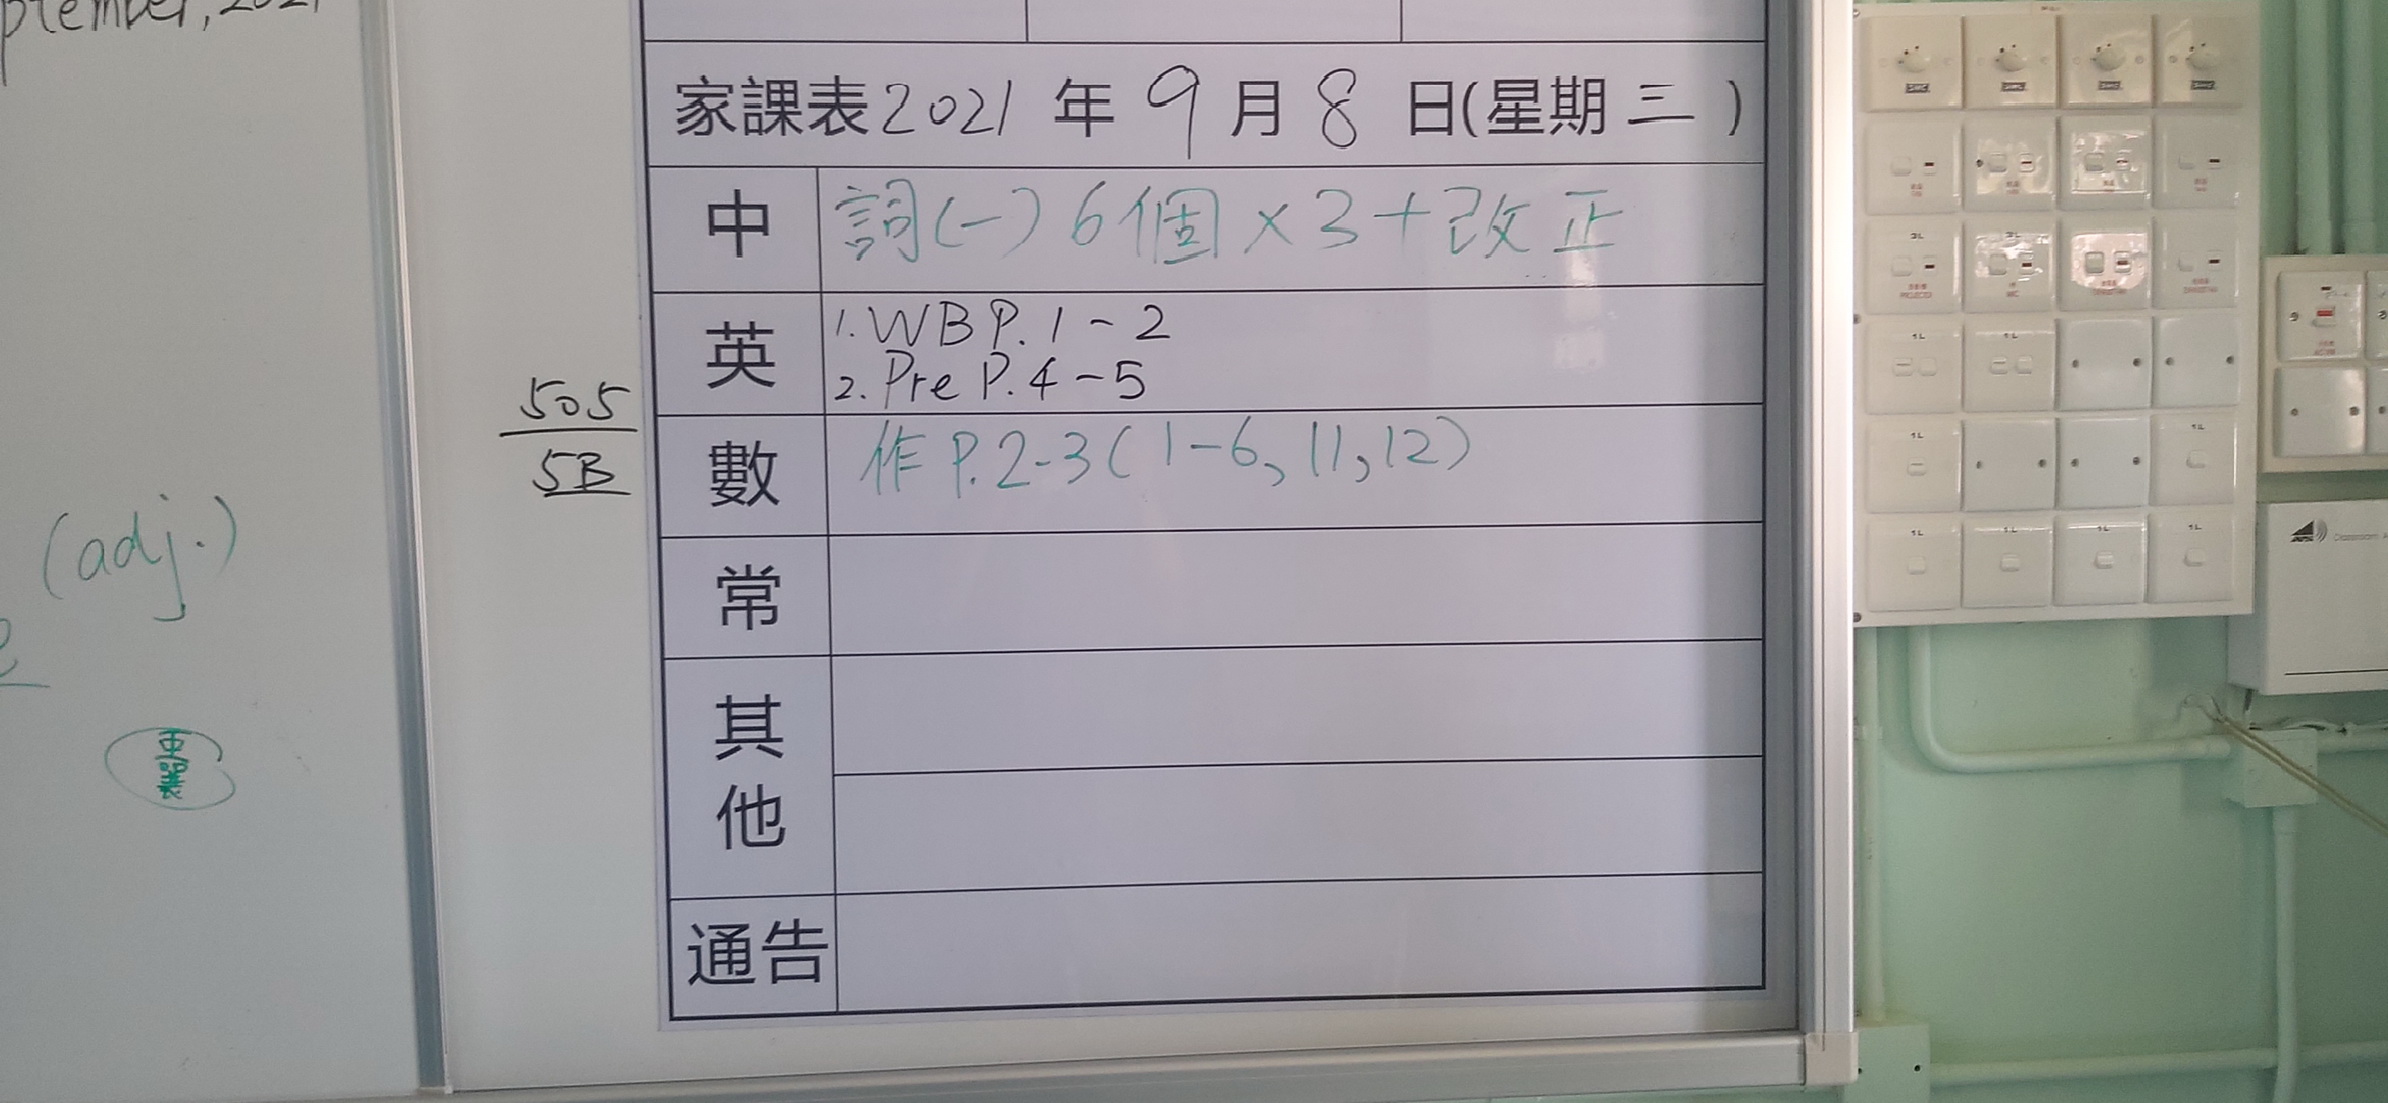 家課表2021年9月8日(星期三)
中 詞(一)6個×3+改正
英 1. WB P.1-2
2. Pre P.4-5
數 作P.2-3(1-6, 11, 12)
常
其他
通告
505
5B
(adj.)